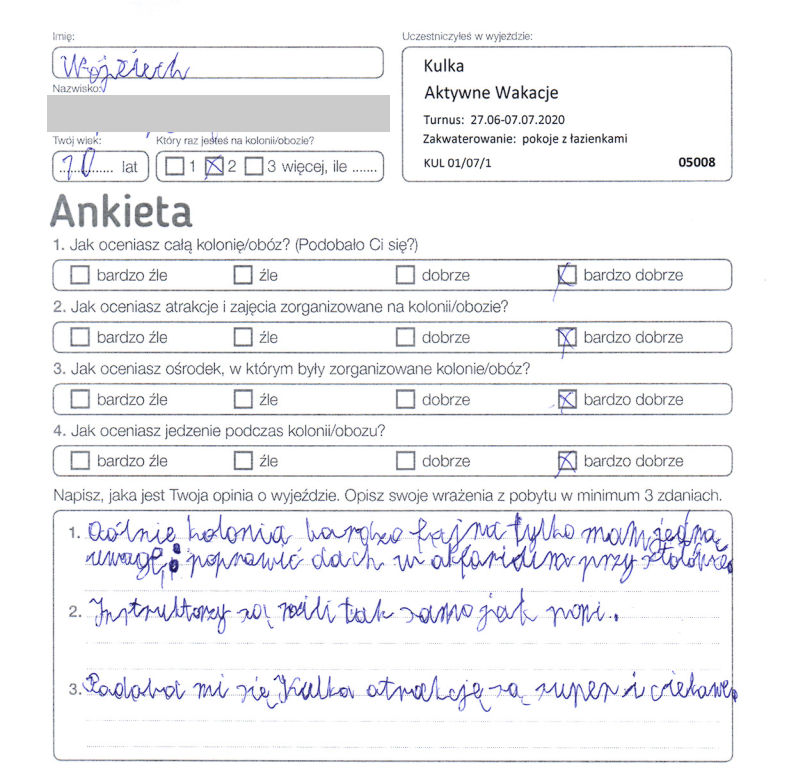 Imię:
Wojciech
Nazwisko:
Twój wiek:
Który raz jesteś na kolonii/obozie?
10 lat
1 2 3 więcej, ile .......
Uczestniczyłeś w wyjeździe:
Kulka
Aktywne Wakacje
Turnus: 27.06-07.07.2020
Zakwaterowanie: pokoje z łazienkami
KUL 01/07/1 05008
Ankieta
1. Jak oceniasz całą kolonię/obóz? (Podobało Ci się?)
bardzo źle źle dobrze bardzo dobrze
2. Jak oceniasz atrakcje i zajęcia zorganizowane na kolonii/obozie?
bardzo źle źle dobrze bardzo dobrze
3. Jak oceniasz ośrodek, w którym były zorganizowane kolonie/obóz?
bardzo źle źle dobrze bardzo dobrze
4. Jak oceniasz jedzenie podczas kolonii/obozu?
bardzo źle źle dobrze bardzo dobrze
Napisz, jaka jest Twoja opinia o wyjeździe. Opisz swoje wrażenia z pobytu w minimum 3 zdaniach.
1. kolonia bardzo fajna tylko mam jedną
uwagę: poprawić dach w przy stołówce.
2. Instruktorzy są mili tak samo jak
3. mi się Kulka atrakcję są super i ciekawe.